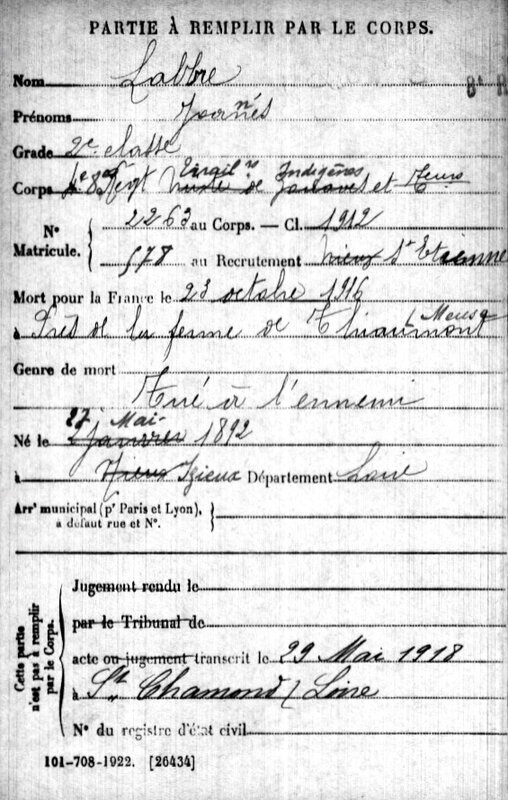 PARTIE À REMPLIR PAR LE CORPS.
Nom Labbre
Prénoms Joannés
Grade 2e classe
Corps 4e Régt Mixte de Zouaves et Tirailrs Indigènes
N° Matricule. 2263 au Corps. — Cl. 1912
578 au Recrutement St Etienne
Mort pour la France le 23 octobre 1916
à Près de la ferme de Thiaumont (Meuse
Genre de mort Tué à l'ennemi
Né le 27 Mai janvier 1892
à Izieux Département Loire
Arrt municipal (pr Paris et Lyon),
à défaut rue et N°.
Cette partie n'est pas à remplir par le Corps.
Jugement rendu le
par le Tribunal de
acte ou jugement transcrit le 29 Mai 1918
à St Chamond / Loire
N° du registre d'état civil
101-708-1922. [26434]